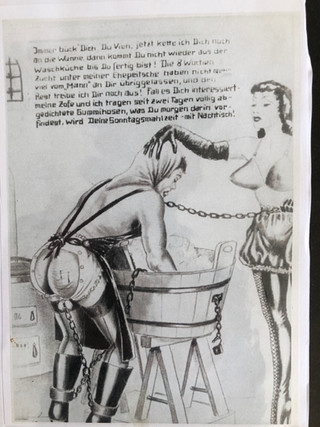 Immer bück' Dich, Du Vieh, jetzt kette ich Dich noch
an die Wanne, dann kommt Du nicht wieder aus der
Waschküche bis Du fertig bist! Die 8 Wochen
Zucht unter meiner Ehepeitsche haben nicht
viel vom „Mann" an Dir übriggelassen, und den
Rest treibe ich Dir noch aus! Falls es Dich interessiert:
meine Zofe und ich tragen seit zwei Tagen völlig ab-
gedichtete Gummihosen, was Du morgen darin vor-
findest, wird Deine Sonntagsmahlzeit - mit Nachtisch!